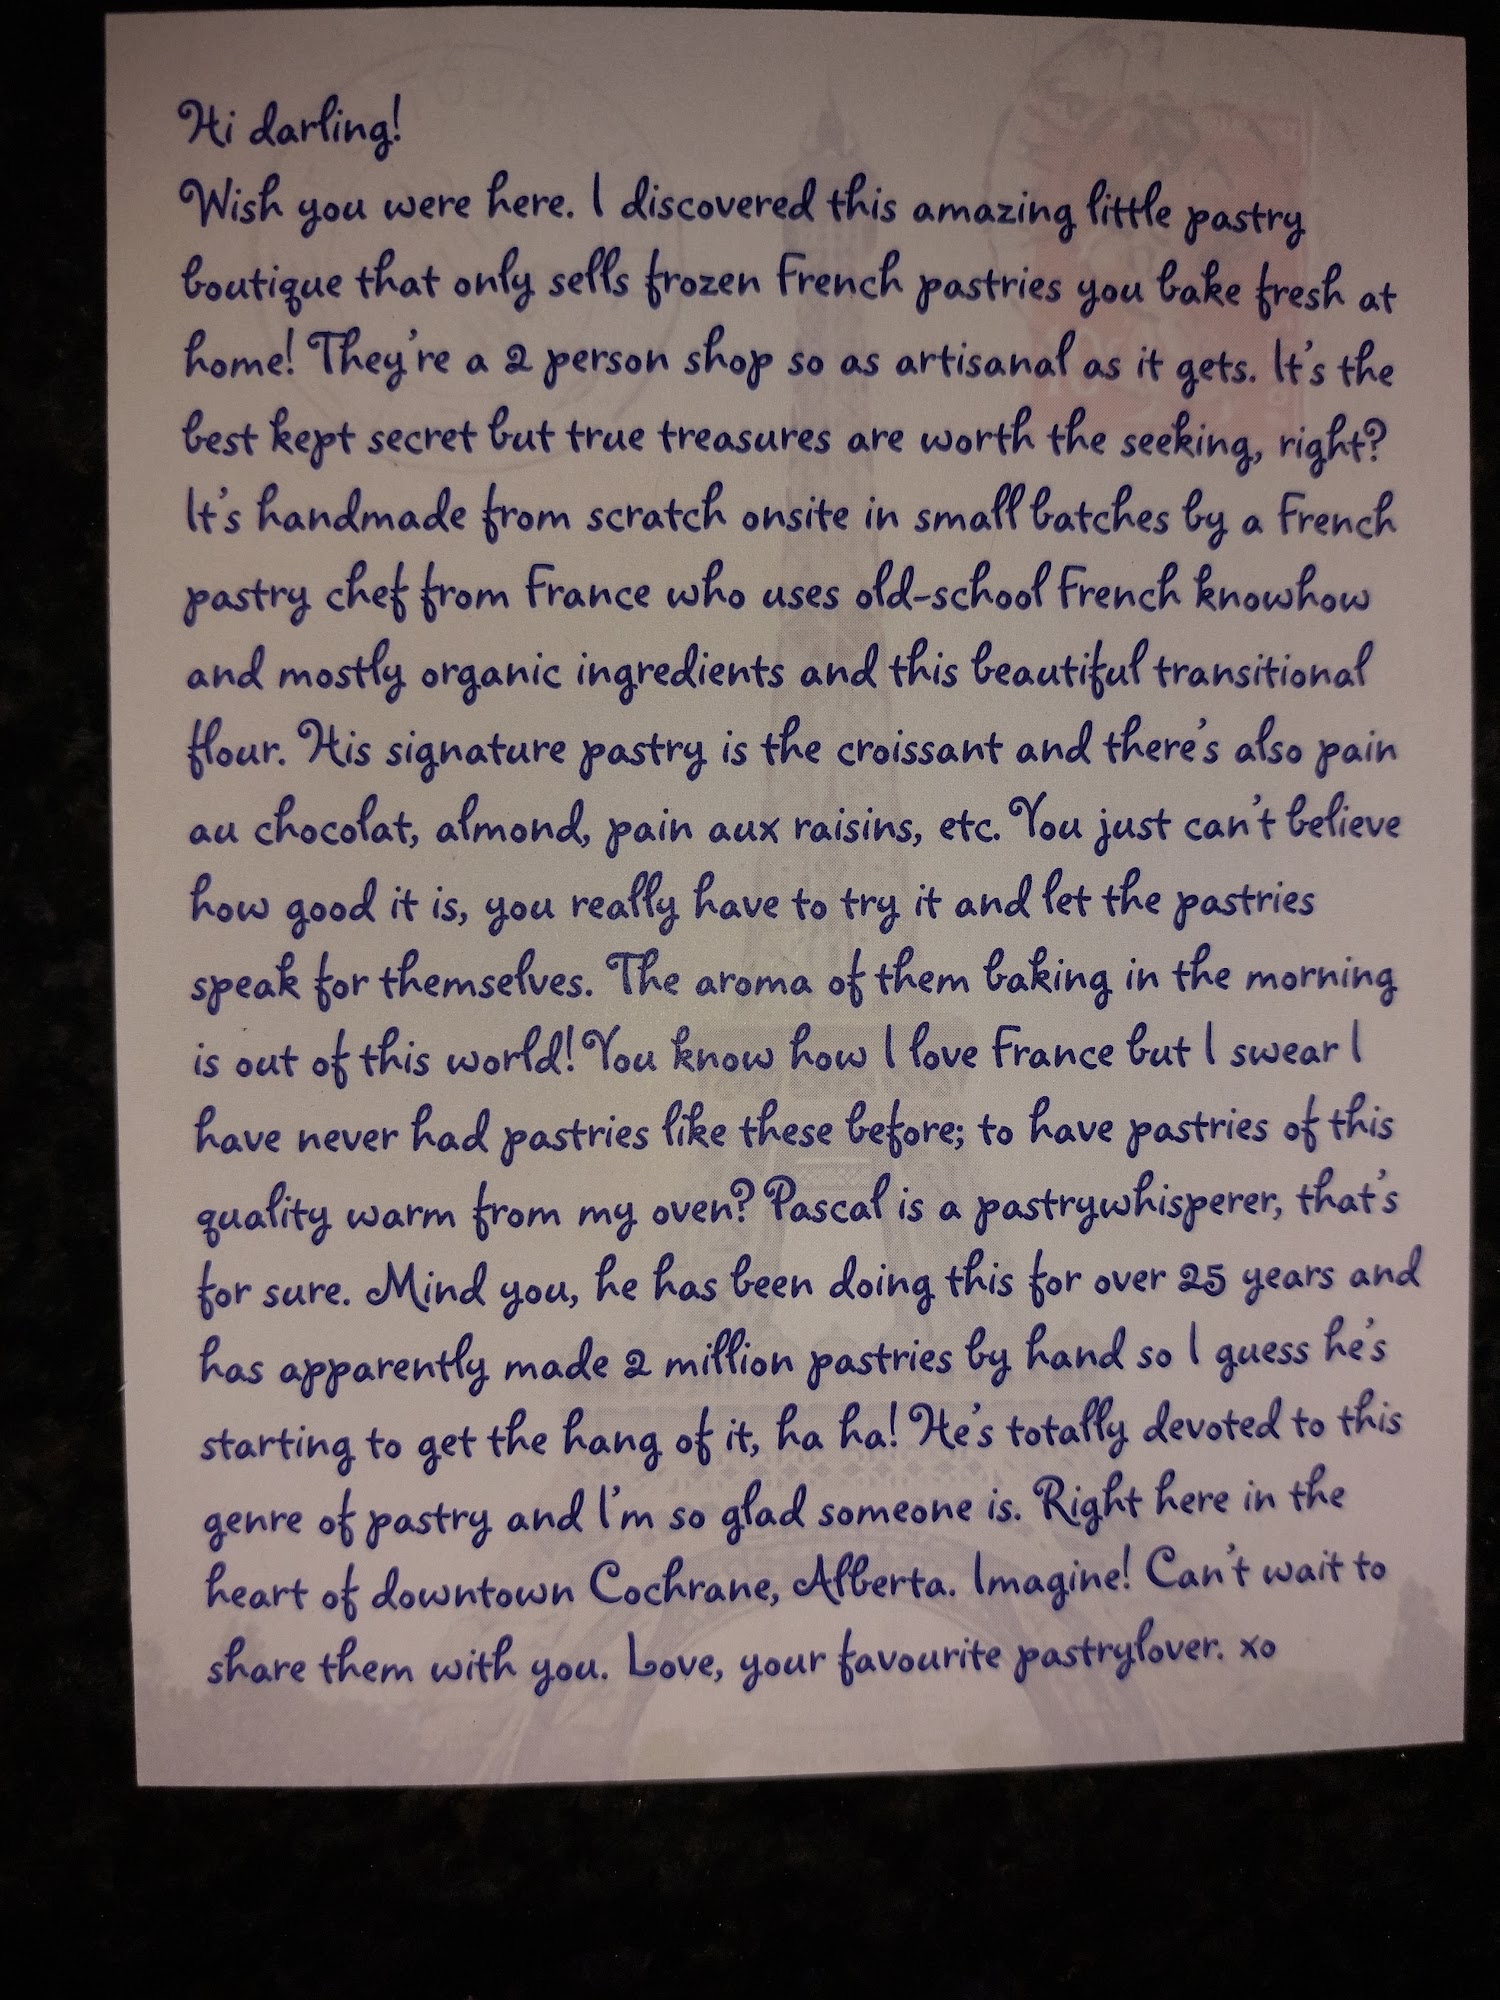 Hi darling!
Wish you were here. I discovered this amazing little pastry
boutique that only sells frozen French pastries you bake fresh at
home! They're a 2 person shop so as artisanal as it gets. It's the
best kept secret but true treasures are worth the seeking, right?
It's handmade from scratch onsite in small batches by a French
pastry chef from France who uses old-school French knowhow
and mostly organic ingredients and this beautiful transitional
flour. His signature pastry is the croissant and there's also pain
au chocolat, almond, pain aux raisins, etc. You just can't believe
how good it is, you really have to try it and let the pastries
speak for themselves. The aroma of them baking in the morning
is out of this world! You know how I love France but I swear I
have never had pastries like these before; to have pastries of this
quality warm from my oven? Pascal is a pastrywhisperer, that's
for sure. Mind you, he has been doing this for over 25 years and
has apparently made 2 million pastries by hand so I guess he's
starting to get the hang of it, ha ha! He's totally devoted to this
genre of pastry and I'm so glad someone is. Right here in the
heart of downtown Cochrane, Alberta. Imagine! Can't wait to
share them with you. Love, your favourite pastrylover. xo